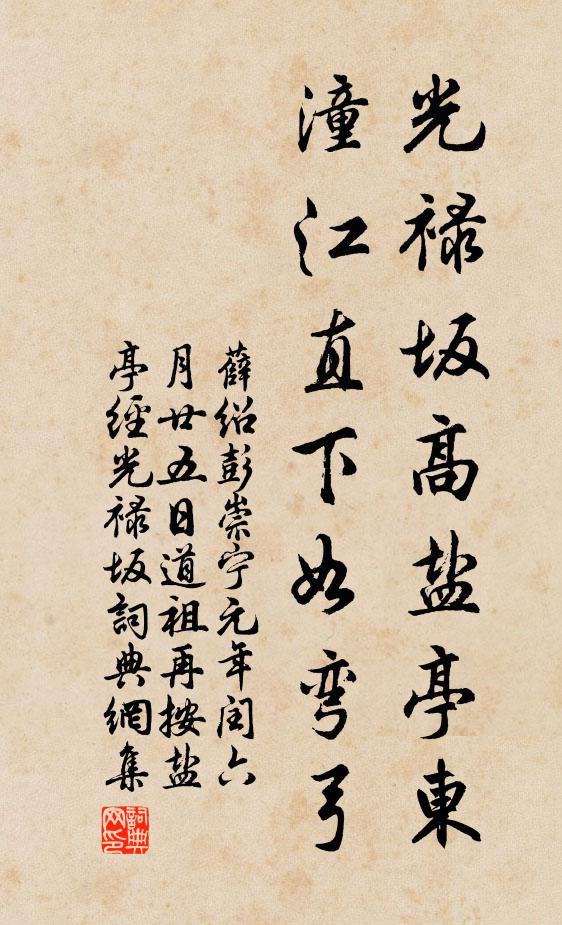 光禄坂高盐亭東
潼江直下如弯弓
薛绍彭崇宁元年闰六
月廿五日道祖再按盐
亭經光禄坂詞典網集
詞典
网印